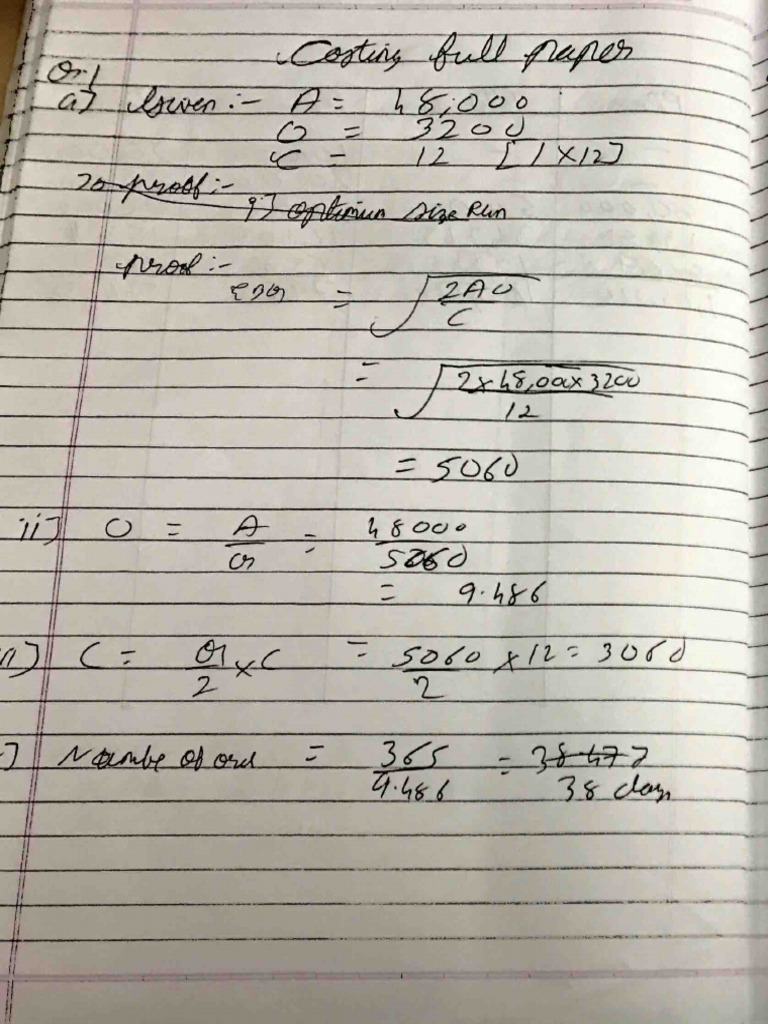 Costing full paper
Qr.1
a] Given :- A = 48,000
O = 3200
C = 12 [1×12]
To proof :-
i] optimun size Run
proof :-
EOQ = √2AO/C
= √2×48,00×3200/12
= 5060
ii] O = A/Q = 48000/5060
= 9.486
C = Q/2 × C = 5060/2 × 12 = 3060
] Numbe of ord = 365/9.486 = 38.477
38 days